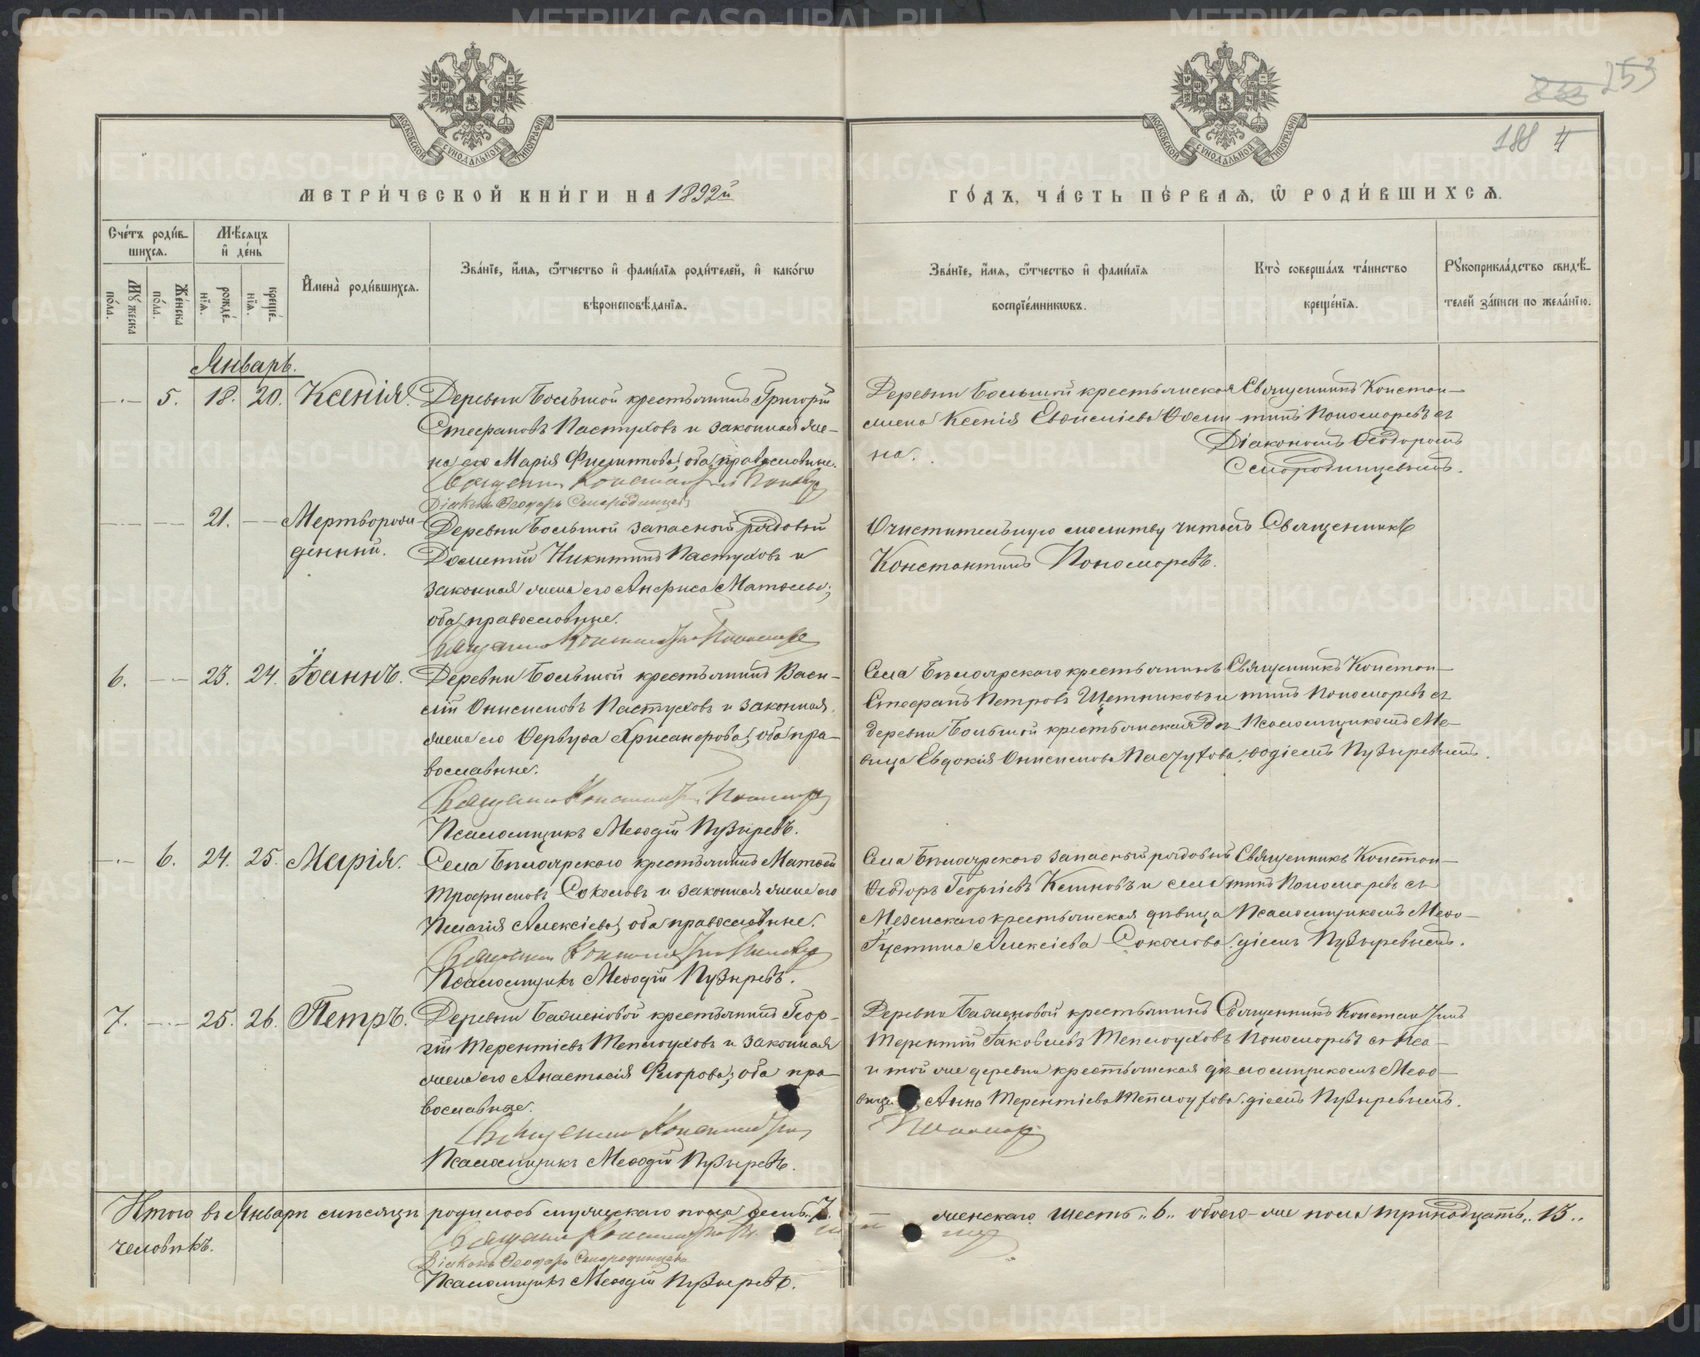 253
188 4
МЕТРИ́ЧЕСКОЙ КНИ́ГИ НА 1892й
ГО́ДЪ, ЧА́СТЬ ПЕ́РВАЯ, Ѡ РОДИ́ВШИХСЯ.
Сче́тъ роди́в-
шихся.
Мꙋ́жеска по́ла.
Же́нска по́ла.
Мѣ́сяцъ
и де́нь
рожде́нїя.
креще́нїя.
Имена̀ роди́вшихся.
Зва́нїе, и́мя, ѻ́тчество и фами́лїя роди́телей, и како́гѡ
вѣроисповѣ́данїя.
Зва́нїе, и́мя, ѻ́тчество и фами́лїя
воспрїе́мникѡвъ.
Кто̀ соверша́лъ та́инство
креще́нїя.
Рꙋкоприкла́дство свидѣ́-
телей за́писи по жела́нїю.
Январь.
5. 18. 20. Ксенія.
Деревни Большой крестьянинъ Григорій
Стефановъ Пастуховъ и законная же-
на его Марія Филиппова; оба православные.
Священникъ Константинъ Пономаревъ
Діаконъ Ѳеодоръ Смородинцевъ
Деревни Большой крестьянская
жена Ксенія
на.
Священникъ Констан-
тинъ Пономаревъ съ
Діакономъ Ѳеодоромъ
Смородинцевымъ.
21. Мертворож-
денный.
Деревни Большой запасной рядовый
Дометій Никитинъ Пастуховъ и
законная жена его Анфиса Матѳеева;
оба православные.
Священникъ Константинъ Пономаревъ
Очистительную молитву читалъ Священникъ
Константинъ Пономаревъ.
6. 23. 24. Іоаннъ.
Деревни Большой крестьянинъ Васи-
лій Онисимовъ Пастуховъ и законная
жена его Ѳервуѳа Хрисанфова; оба пра-
вославные.
Священникъ Константинъ Пономаревъ
Псаломщикъ Меѳодій Пузыревъ.
Села Бѣлоярскаго крестьянинъ
Стефанъ Петровъ Щетниковъ и
деревни Большой крестьянская дѣ-
вица Евдокія Онисимова Пастухова.
Священникъ Констан-
тинъ Пономаревъ съ
Псаломщикомъ Ме-
ѳодіемъ Пузыревымъ.
6. 24. 25. Марія.
Села Бѣлоярскаго крестьянинъ Матѳей
Трофимовъ Соколовъ и законная жена его
Пелагія Алексіева; оба православные.
Священникъ Константинъ Пономаревъ
Псаломщикъ Меѳодій Пузыревъ.
Села Бѣлоярскаго запасный рядовый
Ѳеодоръ Георгіевъ и села
Мезенскаго крестьянская дѣвица
Іустина Алексіева Соколова.
Священникъ Констан-
тинъ Пономаревъ съ
Псаломщикомъ Меѳо-
діемъ Пузыревымъ.
7. 25. 26. Петръ.
Деревни Баженовой крестьянинъ Геор-
гій Терентіевъ Теплоуховъ и законная
жена его Анастасія Флорова; оба пра-
вославные.
Священникъ Константинъ
Пономаревъ
Псаломщикъ Меѳодій Пузыревъ.
Деревни Баженовой крестьянинъ
Терентій Іаковлевъ Теплоуховъ
и той же деревни крестьянская дѣ-
вица Анна Терентіева Теплоухова.
Священникъ Константинъ
Пономаревъ съ Пса-
ломщикомъ Меѳо-
діемъ Пузыревымъ.
Итого въ Январѣ мѣсяцѣ родилось мужскаго пола семь „7„
человѣкъ.
женскаго шесть „6„ обоего же пола тринадцать „13„
Священникъ Константинъ
Діаконъ Ѳеодоръ Смородинцевъ
Псаломщикъ Меѳодій Пузыревъ.